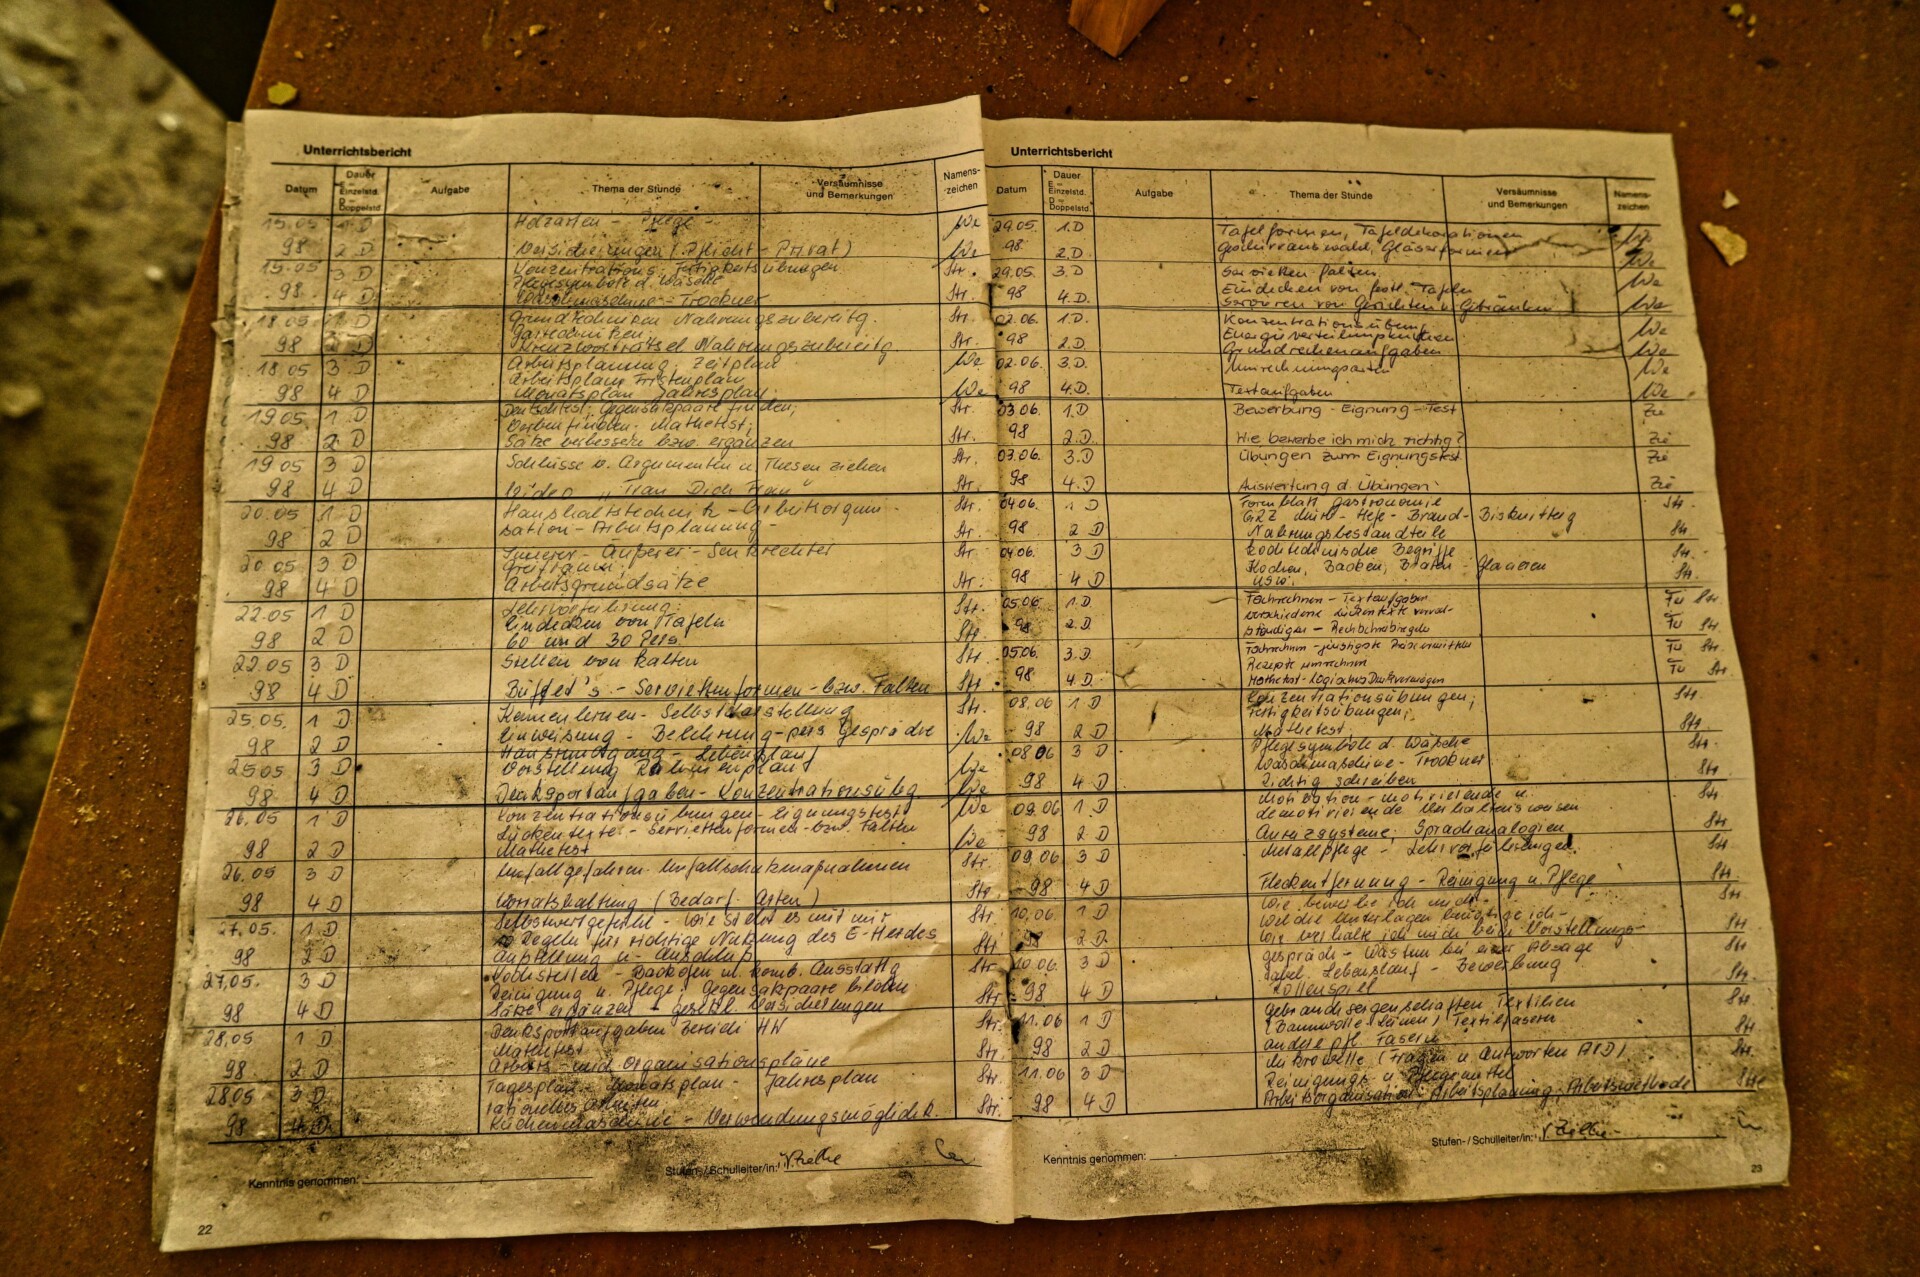 Unterrichtsbericht
Datum
Dauer
E = Einzelstd.
D = Doppelstd.
Aufgabe
Thema der Stunde
Versäumnisse und Bemerkungen
Namens-zeichen
15.05 1 D Holzarten - Pflege We
98 2 D Versicherungen (Pflicht - Privat) We
15.05 3 D Konzentrations, Fertigkeitsübungen Str.
Pflegesymbole d. Wäsche
98 4 D Waschmaschine - Trockner Str.
18.05 1 D Nahrungszubereitg. Str.
98 2 D Kreuzworträtsel Nahrungszubereitg Str.
18.05 3 D Arbeitsplanung, Zeitplan We
Arbeitsplan Fristenplan
98 4 D Monatsplan Jahresplan We
19.05 1 D Gegensatzpaare finden, Str.
Mathetest,
98 2 D Sätze verbessern bzw. ergänzen Str.
19.05 3 D Schlüsse a. Argumenten u Thesen ziehen Str.
98 4 D Video „Trau Dich Frau" Str.
20.05 1 D Haushaltstechnik - Arbeitsorgani- Str.
98 2 D sation - Arbeitsplanung - Str.
20 05 3 D Innerer - Äußerer - Senkrechter Str.
Greifraum;
98 4 D Arbeitsgrundsätze Str.
22.05 1 D Lehrvorführung: Str.
Eindecken von Tafeln
98 2 D 60 und 30 Pers. Str.
22.05 3 D Stellen von kalten Str.
98 4 D Büffet's - Serviettenformen - bzw. Falten Str.
25.05. 1 D Kennenlernen - Selbstdarstellung Str.
Einweisung - Belehrung - pers Gespräche
98 2 D Hausrundgang - Lebenslauf We
25 05 3 D Vorstellung Rahmenplan We
98 4 D Denksportaufgaben - Konzentrationsübg We
26.05 1 D Konzentrationsübungen - Eignungstest We
Lückentexte - Serviettenformen - bzw. Falten
98 2 D Mathetest We
26.05 3 D Unfallgefahren - Unfallschutzmaßnahmen Str.
98 4 D Vorratshaltung (Bedarf. Arten) Str.
27.05. 1 D Selbstwertgefühl - Wie steht es mit mir Str.
10 Regeln für richtige Nutzung des E-Herdes
98 2 D Aufstellung u. Anschluß Str.
27.05. 3 D Kochstellen - Backofen u. komb. Ausstattg Str.
Reinigung u. Pflege; Gegensatzpaare bilden
98 4 D Sätze ergänzen - gesetzl. Versicherungen Str.
28.05 1 D Denksportaufgaben Bereich HW Str.
Mathetest
98 2 D Arbeits- und Organisationspläne Str.
28 05 3 D Tagesplan - Monatsplan - Jahresplan Str.
rationelles Arbeiten
98 4 D Küchenmaschine - Verwendungsmöglichk. Str.
Kenntnis genommen:
Stufen-/Schulleiter/in:
22
Unterrichtsbericht
Datum
Dauer
E = Einzelstd.
D = Doppelstd.
Aufgabe
Thema der Stunde
Versäumnisse und Bemerkungen
Namens-zeichen
29.05. 1.D Tafelformen, Tafeldekorationen We
98 2.D Geschirrauswahl, Gläserformen We
29.05. 3.D Servietten falten We
Eindecken von festl. Tafeln
98 4.D. Servieren von Gerichten u. Getränken We
02.06. 1.D. Konzentrationsübung We
98 2.D Grundrechenaufgaben We
02.06. 3.D. Umrechnungsarten We
98 4.D. Textaufgaben We
03.06. 1.D Bewerbung - Eignung - Test Zie
98 2.D. Wie bewerbe ich mich richtig? Zie
03.06. 3.D Übungen zum Eignungstest Zie
98 4.D. Auswertung d. Übungen Zie
04.06. 1 D Formblatt Gastronomie Str.
GRZ Mürb - Hefe - Brand - Biskuitteig
98 2 D Nahrungsbestandteile Str.
04.06. 3 D kochtechnische Begriffe Str.
Kochen, Backen, Braten - Glacieren
98 4 D usw. Str.
05.06 1.D. Fachrechnen - Textaufgaben Tu Str.
verschiedene Lückentexte vervoll-
98 2.D. ständigen - Rechtschreibregeln Tu Str.
05.06. 3.D. Tu Str.
Rezepte umrechnen
98 4.D. Mathetest - logisches Denkvermögen Tu Str.
08.06 1 D Konzentrationsübungen; Str.
Fertigkeitsübungen;
98 2 D Mathetest Str.
08 06 3 D Pflegesymbole d. Wäsche Str.
Waschmaschine - Trockner
98 4 D Richtig schreiben Str.
09.06 1 D Motivation - motivierende u. Str.
demotivierende Verhaltensweisen
98 2 D Anreizsysteme; Sprachanalogien Str.
09.06 3 D Metallpflege - Lehrvorführungen Str.
98 4 D Fleckentfernung - Reinigung u. Pflege Str.
10.06. 1 D Wie bewerbe ich mich - Str.
Welche Unterlagen benötige ich -
98 2 D Wie verhalte ich mich beim Vorstellungs- Str.
10 06. 3 D gespräch - Was tun bei einer Absage Str.
tabel. Lebenslauf - Bewerbung
98 4 D Rollenspiel Str.
11.06 1 D Gebrauchseigenschaften Textilien Str.
(Baumwolle Leinen) Textilfasern
98 2 D andere pfl. Fasern Str.
11.06 3 D Mikrowelle (Fragen u. Antworten AID) Str.
Reinigungs- u. Pflegemittel
98 4 D Arbeitsorganisation, Arbeitsplanung, Arbeitsmethode Str.
Kenntnis genommen:
Stufen-/Schulleiter/in:
23